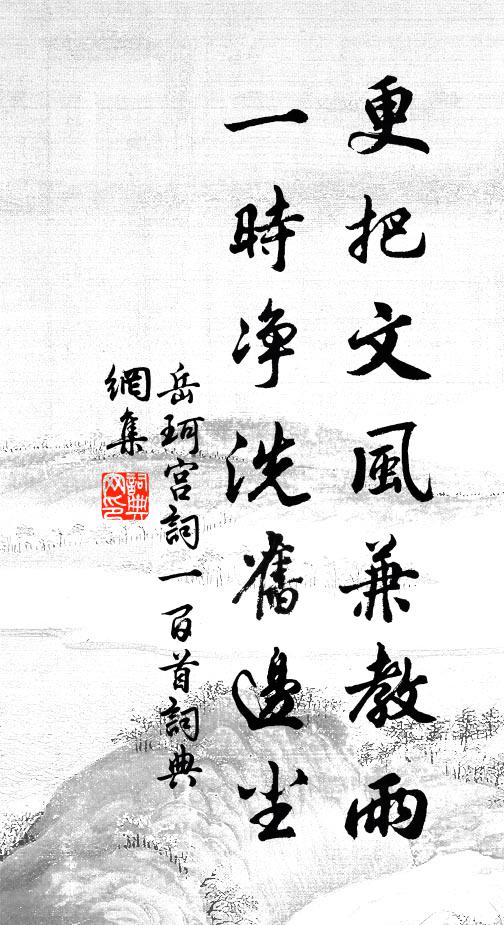 更把文風兼教雨
一時净洗舊邊尘
岳珂宫詞一百首詞典
網集
詞典
网印